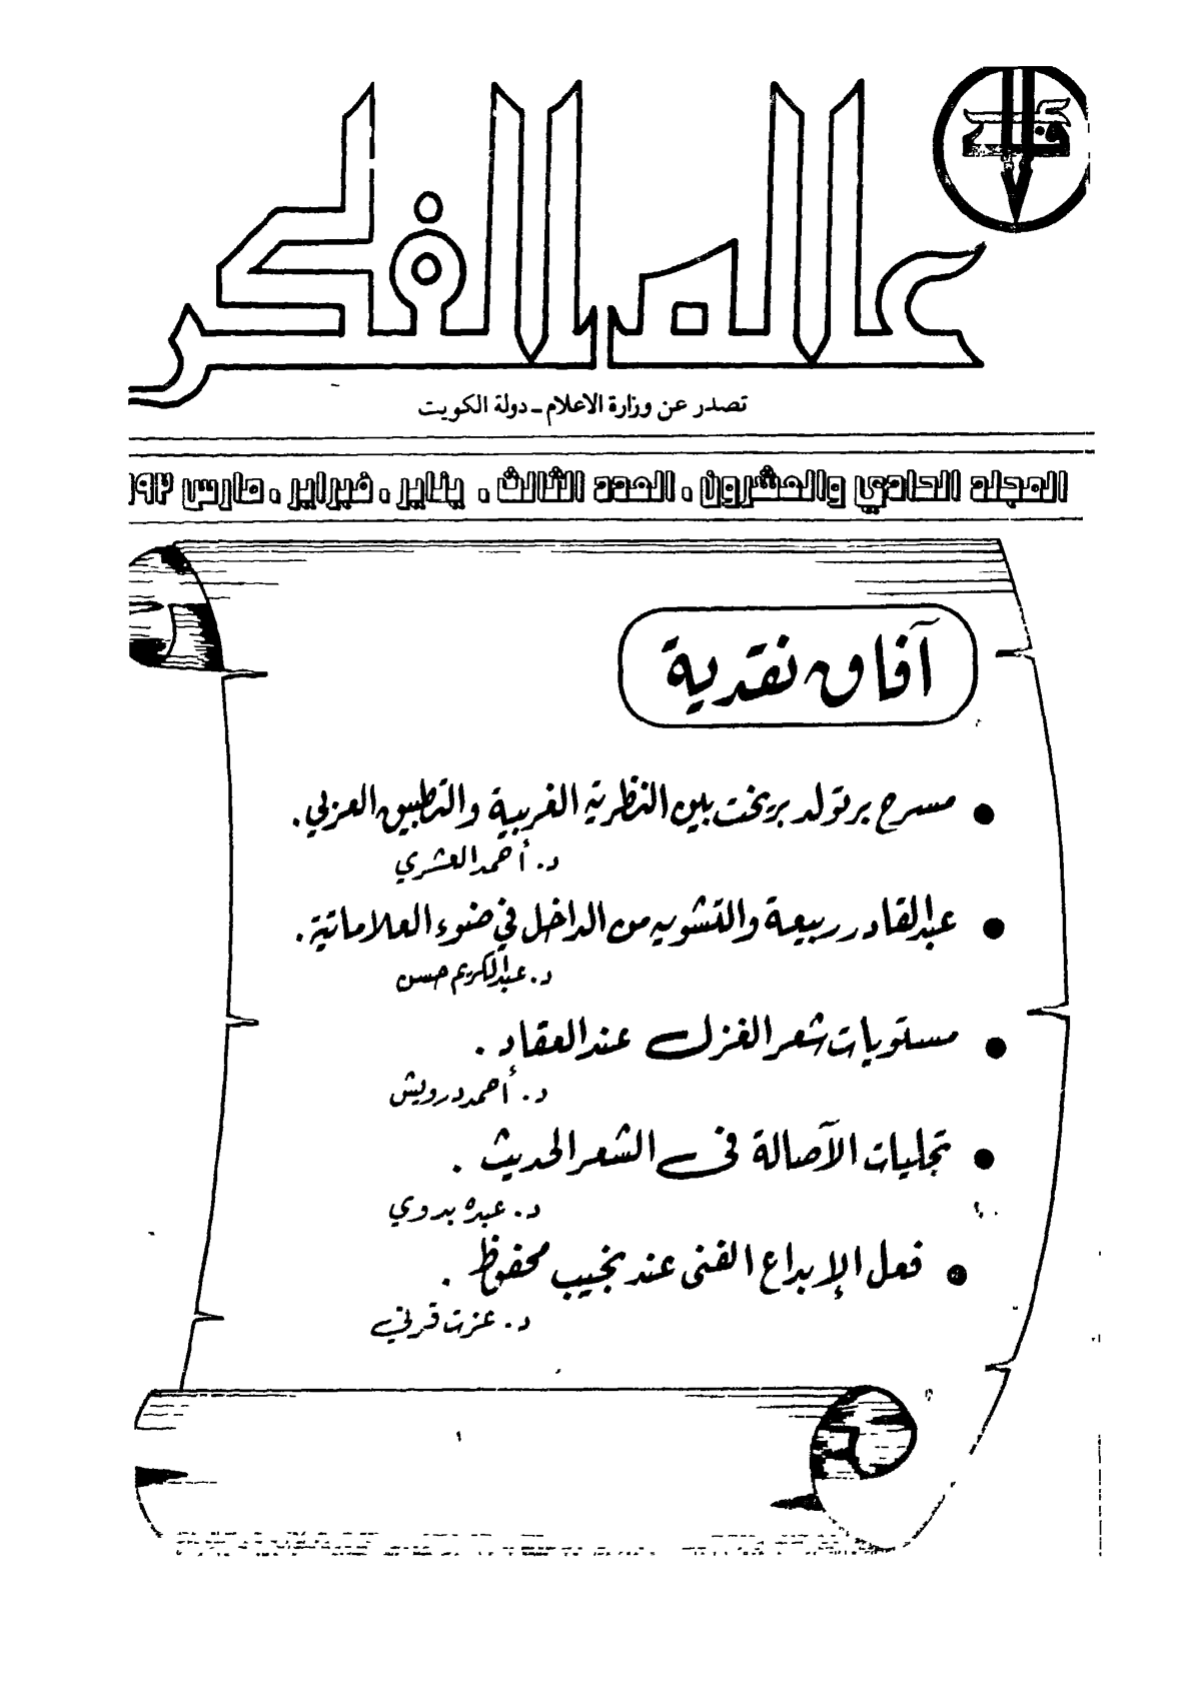 عالم الفكر
تصدر عن وزارة الاعلام - دولة الكويت
المجلد الحادي والعشرون . العدد الثالث . يناير . فبراير . مارس ٩٩٢
آفاق نقدية
● مسرح برتولد بريخت بين النظرية الغربية والتطبيق العربي .
د . أحمد العشري
● عبدالقادر ربيعة والتشويه من الداخل في ضوء العلاماتية .
د . عبدالكريم حسن
● مستويات شعر الغزل عند العقاد .
د . أحمد درويش
● تجليات الآصالة في الشعر الحديث .
د . عبده بدوي
● فعل الإبداع الفنى عند نجيب محفوظ .
د . عزت قرني